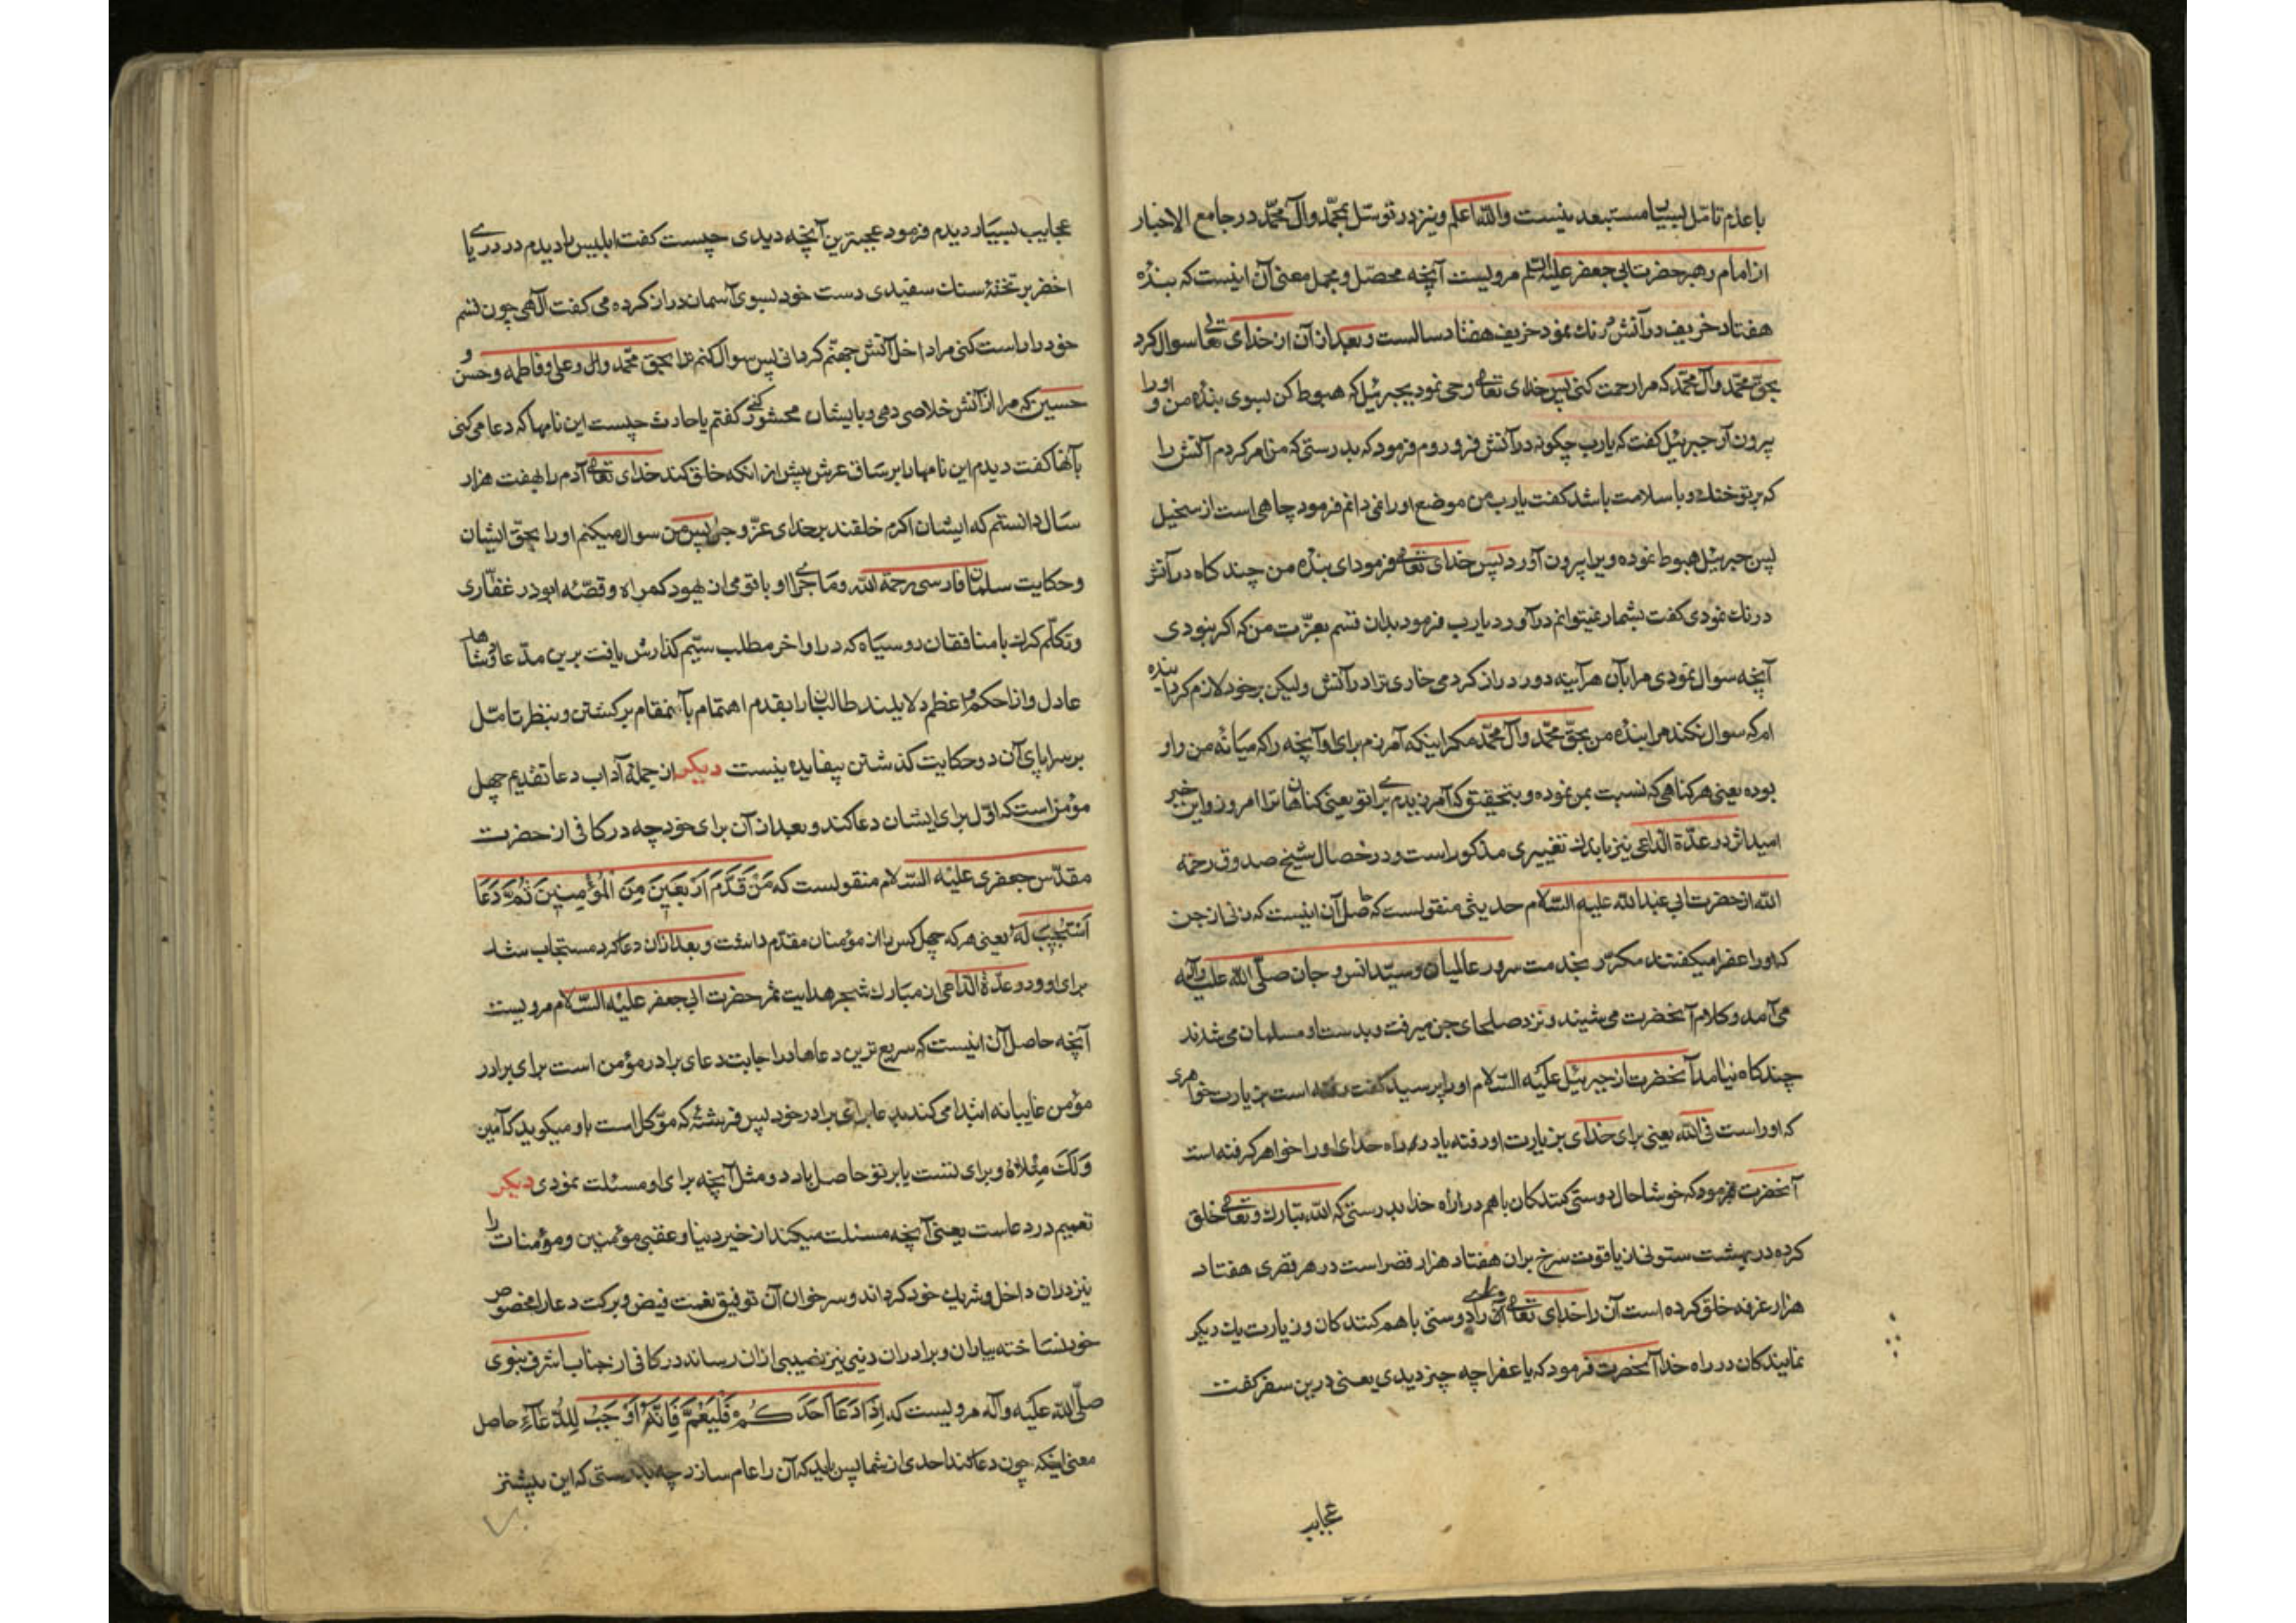 با عدم تأمل بسیار مستبعد نیست واللّه اعلم و نیز در توسّل بمحمّد وآل محمّد در جامع الاخبار
از امام رهبر حضرت ابی جعفر علیه السلم مرویست آنچه محصّل و مجمل معنی آن اینست که بندهٔ
هفتاد خریف در آتش درنك نمود خریف هفتاد سالست و بعد از آن از خدای تعالی سوال کرد
بحقّ محمّد وآل محمّد که مرا رحمت کنی پس خدای تعالی وحی نمود بجبرئیل که هبوط کن بسوی بندهٔ من و او را
بیرون آر جبرئیل گفت که یارب چکونه در آتش فرو روم فرمود که بدرستی که من امر کردم آتش را
که بر تو خنك و با سلامت باشد گفت یارب من موضع او را نمی دانم فرمود چاهی است از سجّیل
پس جبرئیل هبوط نموده ویرا بیرون آورد پس خدای تعالی فرمود ای بندهٔ من چند کاه در آتش
درنك نمودی گفت بشمار نمیتوانم درآورد یارب فرمود بدان قسم بعزّت من که اکر نبودی
آنچه سوال نمودی مرا بآن هرآینه دور دراز کردمی خاری ترا در آتش ولیکن بر خود لازم کردانیده
ام که سوال نکند مرا بندهٔ من بحقّ محمّد وآل محمّد مکر اینکه آمرزم برای او آنچه را که میانهٔ من و او
بوده یعنی هر کناهی که نسبت بمن نموده و بتحقیق که آمرزیدم برای تو یعنی کناهان ترا امروز و این خبر
امید اثر در عدّة الداعی نیز باندك تغییری مذکور است و در خصال شیخ صدوق رحمه
اللّه از حضرت ابی عبداللّه علیه السّلام حدیثی منقولست که حاصل آن اینست که زنی از جن
که او را عفرا میکفتند مکرّر بخدمت سرور عالمیان و سیّد انس و جان صلّی اللّه علیه وآله
می آمد و کلام آنحضرت می شنید و نزد صلحای جن میرفت و بدست او مسلمان می شدند
چند کاه نیامد آنحضرت از جبرئیل علیه السّلام او را پرسید گفت رفته است بزیارت خواهری
که او راست فی اللّه یعنی برای خدای بزیارت او رفته یا در راه خدای او را خواهر کرفته است
آنحضرت فرمود که خوشا حال دوستی کنندکان باهم در راه خدا بدرستی که اللّه تبارك و تعالی خلق
کرده در بهشت ستونی از یاقوت سرخ بران هفتاد هزار قصر است در هر قصری هفتاد
هزار غرفه خلق کرده است آن را خدای تعالی برای دوستی باهم کنندکان و زیارت یك دیکر
نمایندکان در راه خدا آنحضرت فرمود که یا عفرا چه چیز دیدی یعنی درین سفر کفت
عجایب
عجایب بسیار دیدم فرمود عجبترین آنچه دیدی چیست کفت ابلیس را دیدم در دریای
اخضر بر تختهٔ سنك سفیدی دست خود بسوی آسمان دراز کرده می کفت الٓهی چون قسم
خود را راست کنی مرا داخل آتش جهنّم کردانی پس سوال کنم ترا بحق محمّد و علی و فاطمه و حسن و
حسین که مرا از آتش خلاصی دهی و بایشان محشور کنی کفتم یا حارث چیست این نامها که دعا می کنی
بآنها کفت دیدم این نامها را بر ساق عرش پیش از انکه خلق کند خدای تعالی آدم را بهفت هزار
سال دانستم که ایشان اکرم خلقند بر خدای عزّ و جل پس من سوال میکنم او را بحقّ ایشان
و حکایت سلمان فارسی رحمة اللّه و ماجرای او با قومی از یهود کمراه و قصّهٔ ابوذر غفّاری
و تکلّم کرك با منافقان رو سیاه که در اواخر مطلب سیّم کذارش یافت برین مدّعا کواها
عادل و از احکم و اعظم دلایلند طالبان را بقدم اهتمام بآنمقام برکشتن و بنظر تأمّل
بر سراپای آن دو حکایت کذشتن بیفایده نیست دیکر از جملهٔ آداب دعا تقدیم چهل
مؤمن است که اوّل برای ایشان دعا کند و بعد از آن برای خود چه در کافی از حضرت
مقدّس جعفری علیه السّلام منقولست که مَنْ قَدَّمَ اَرْبَعَیٖنَ مِنَ الْمُؤْمِنیٖنَ ثُمَّ دَعَا
اُسْتُجیٖبَ لَهُ یعنی هر که چهل کس را از مؤمنان مقدّم داشت و بعد ازان دعا کرد مستجاب شد
برای او و در عدّة الداعی از مبارك شجر هدایت ثمر حضرت ابی جعفر علیه السّلام مرویست
آنچه حاصل آن اینست که سریع ترین دعاها در اجابت دعای برادر مؤمن است برای برادر
مؤمن غایبانه ابتدا می کند بدعا برای برادر خود پس فرشتهٔ که موکّل است باو میکوید که آمین
وَلَكَ مِثْلاٰهُ و برای تست یا بر تو حاصل باد دو مثل آنچه برای او مسئلت نمودی دیکر
تعمیم در دعاست یعنی آنچه مسئلت میکند از خیر دنیا و عقبی مؤمنین و مؤمنات را
نیز دران داخل و شریك خود کرداند و سر خوان آن توفیق نعمت فیض و برکت دعا را مخصوص
خود نساخته بیاران و برادران دینی نیز نصیبی ازان رساند در کافی از جناب اشرف نبوی
صلّی اللّه علیه وآله مرویست که اِذَا دَعَا اَحَدُکُمْ فَلْیَعُمَّ فَاِنَّهُ اَوْجَبُ لِلدُّعَآءِ حاصل
معنی اینکه چون دعا کند احدی از شما پس باید که آن را عام سازد چه بدرستی که این بیشتر